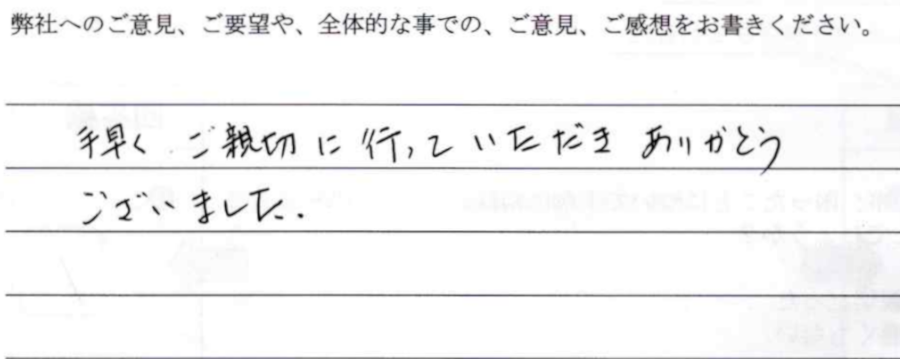 弊社へのご意見、ご要望や、全体的な事での、ご意見、ご感想をお書きください。
手早く ご親切に行っていただき ありがとう
ございました.